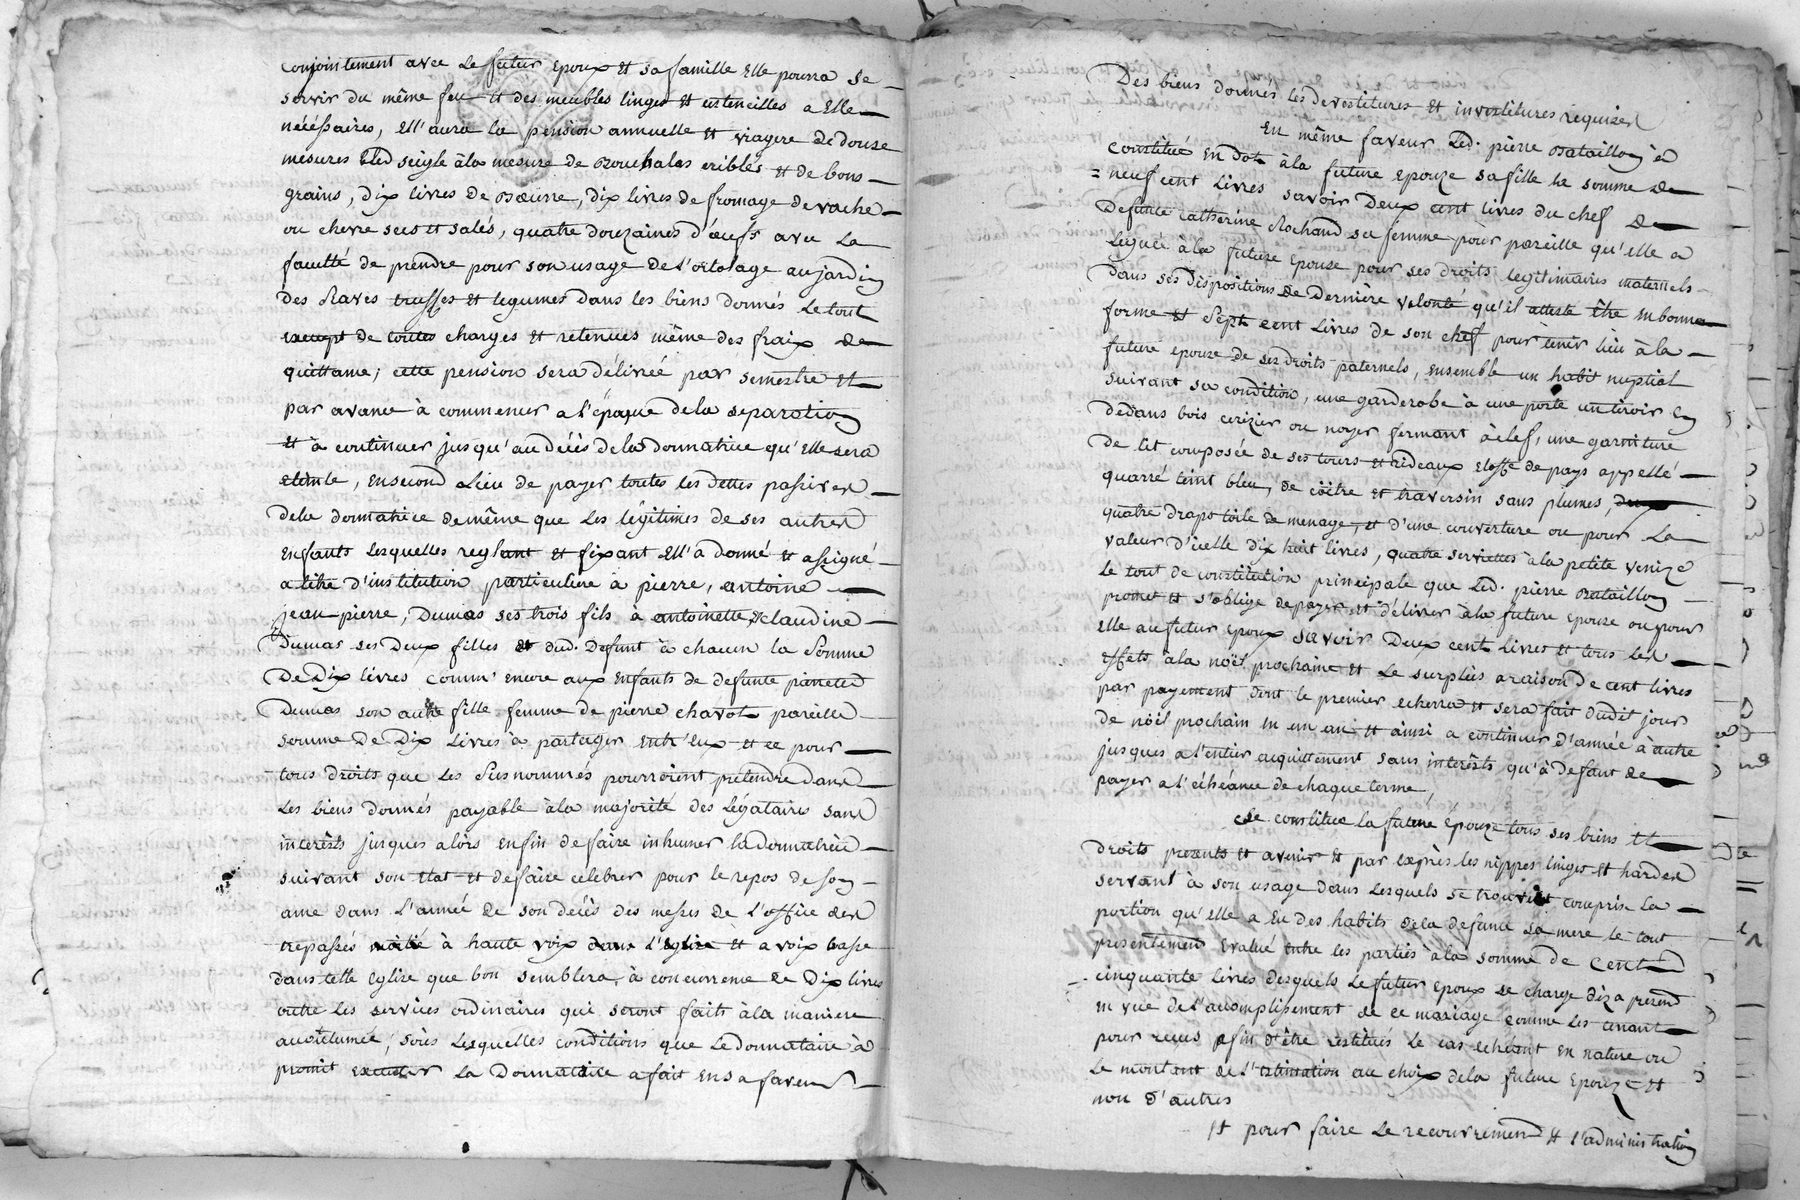 conjointement avec le futur epoux et sa famille elle pourra se
servir du même feu et des meubles linges et ustencilles a elle
nécéssaires, ell'aura la pension annuelle et viagere de douze
mesures bled seigle à la mesure de cribles et de bons
grains, dix livres de Bœurre, dix livres de fromage de vache
ou chevre secs et salés, quatre douzaines d'œufs avec la
faculté de prendre pour son usage de l'ortolage au jardin
des Raves truffes et legumes dans les biens donnés le tout
exempt de toutes charges et retenues même des fraix de
quittance, cette pension sera délivrée par semestre et
par avance à commencer a l'époque de la separation
et à continuer jusqu'au décès de la donnatrice qu'elle sera
eteinte, en second Lieu de payer toutes les dettes passives
de la donnatrice de même que les légitimes de ses autres
enfants lesquelles reglant et fixant ell'a donné et assigné
a titre d'institution particuliere à pierre, antoine
jean pierre, Dumas ses trois fils à antoinette, & claudine
Dumas ses deux filles et dud. Defunt à chacun la Somme
De Dix livres comm'encore aux enfants de defunte pierrette
Dumas son autre fille femme de pierre chavot pareille
somme De Dix Livres à partager entr'eux et ce pour
tous droits que les susnommés pourroient pretendre dans
les biens donnés payable à la majorité des légataires sans
interêts jusques alors enfin de faire inhumer la donnatrice
suivant son etat et de faire celebrer pour le repos de son
ame dans l'année de son décès des messes de l'office des
trepassés moitié à haute voix dans l'eglise et a voix basse
dans telle Eglise que bon semblera, à concurrence de Dix livres
outre les services ordinaires qui seront faits à la maniere
accoutumée, sous lesquelles conditions que le donnataire à
promit executer la Donnatrice a fait en sa faveur
Des biens donnés les devestitures et investitures requises
En même faveur Led. pierre Bataillon à
constitué en dot à la future epouze sa fille la somme de
neuf cent livres savoir Deux cent livres du chef de
Defunte catherine Rochand sa femme pour pareille qu'elle a
leguée à la future epouze pour ses droits legitimaires maternels
dans ses dispositions de Derniere volonté qu'il atteste être en bonne
forme et sept cent livres de son chef pour tenir lieu à la
future epouze de ses droits paternels, ensemble un habit nuptial
suivant sa condition, une garderobe à une porte un tiroir en
dedans bois cerizier ou noyer fermant à clef, une garniture
de lit composée de ses tours et rideaux etoffe de pays appellé
quarré teint bleu, de coitre et traversin sans plumes,
quatre draps toile de menage, et d'une couverture ou pour la
valeur d'icelle dix huit livres, quatre serviettes à la petite venize
Le tout de constitution principale que Led. pierre Bataillon
promet et s'oblige de payer et délivrer à la future epouze ou pour
elle au futur epoux savoir Deux cent Livres et tous les
effets à la noël prochaine et le surplus a raison de cent livres
par payement dont le premier echerra et sera fait dudit jour
de noël prochain en un an et ainsi a continuer d'année à autre
jusques a l'entier acquittement sans interêts qu'à defaut de
payer a l'échéance de chaque terme,
se constitue la future épouze tous ses biens et
droits presents et avenir et par exprès les nippes linges et hardes
servant à son usage dans lesquels se trouvent compris la
portion qu'elle a eu des habits de la defunte sa mere le tout
presentement evalué entre les parties à la somme de Cent
cinquante livres desquels le futur epoux se charge dès a présent
en vue de l'accomplissement de ce mariage comme les tenant
pour reçus afin d'être restitués le cas echéant en nature ou
Le montant de l'estimation au choix de la future epouze et
non d'autres
Et pour faire le recouvrement et l'administration